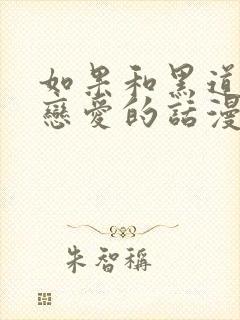 如果和黑道
戀愛的話漫
朱智稱